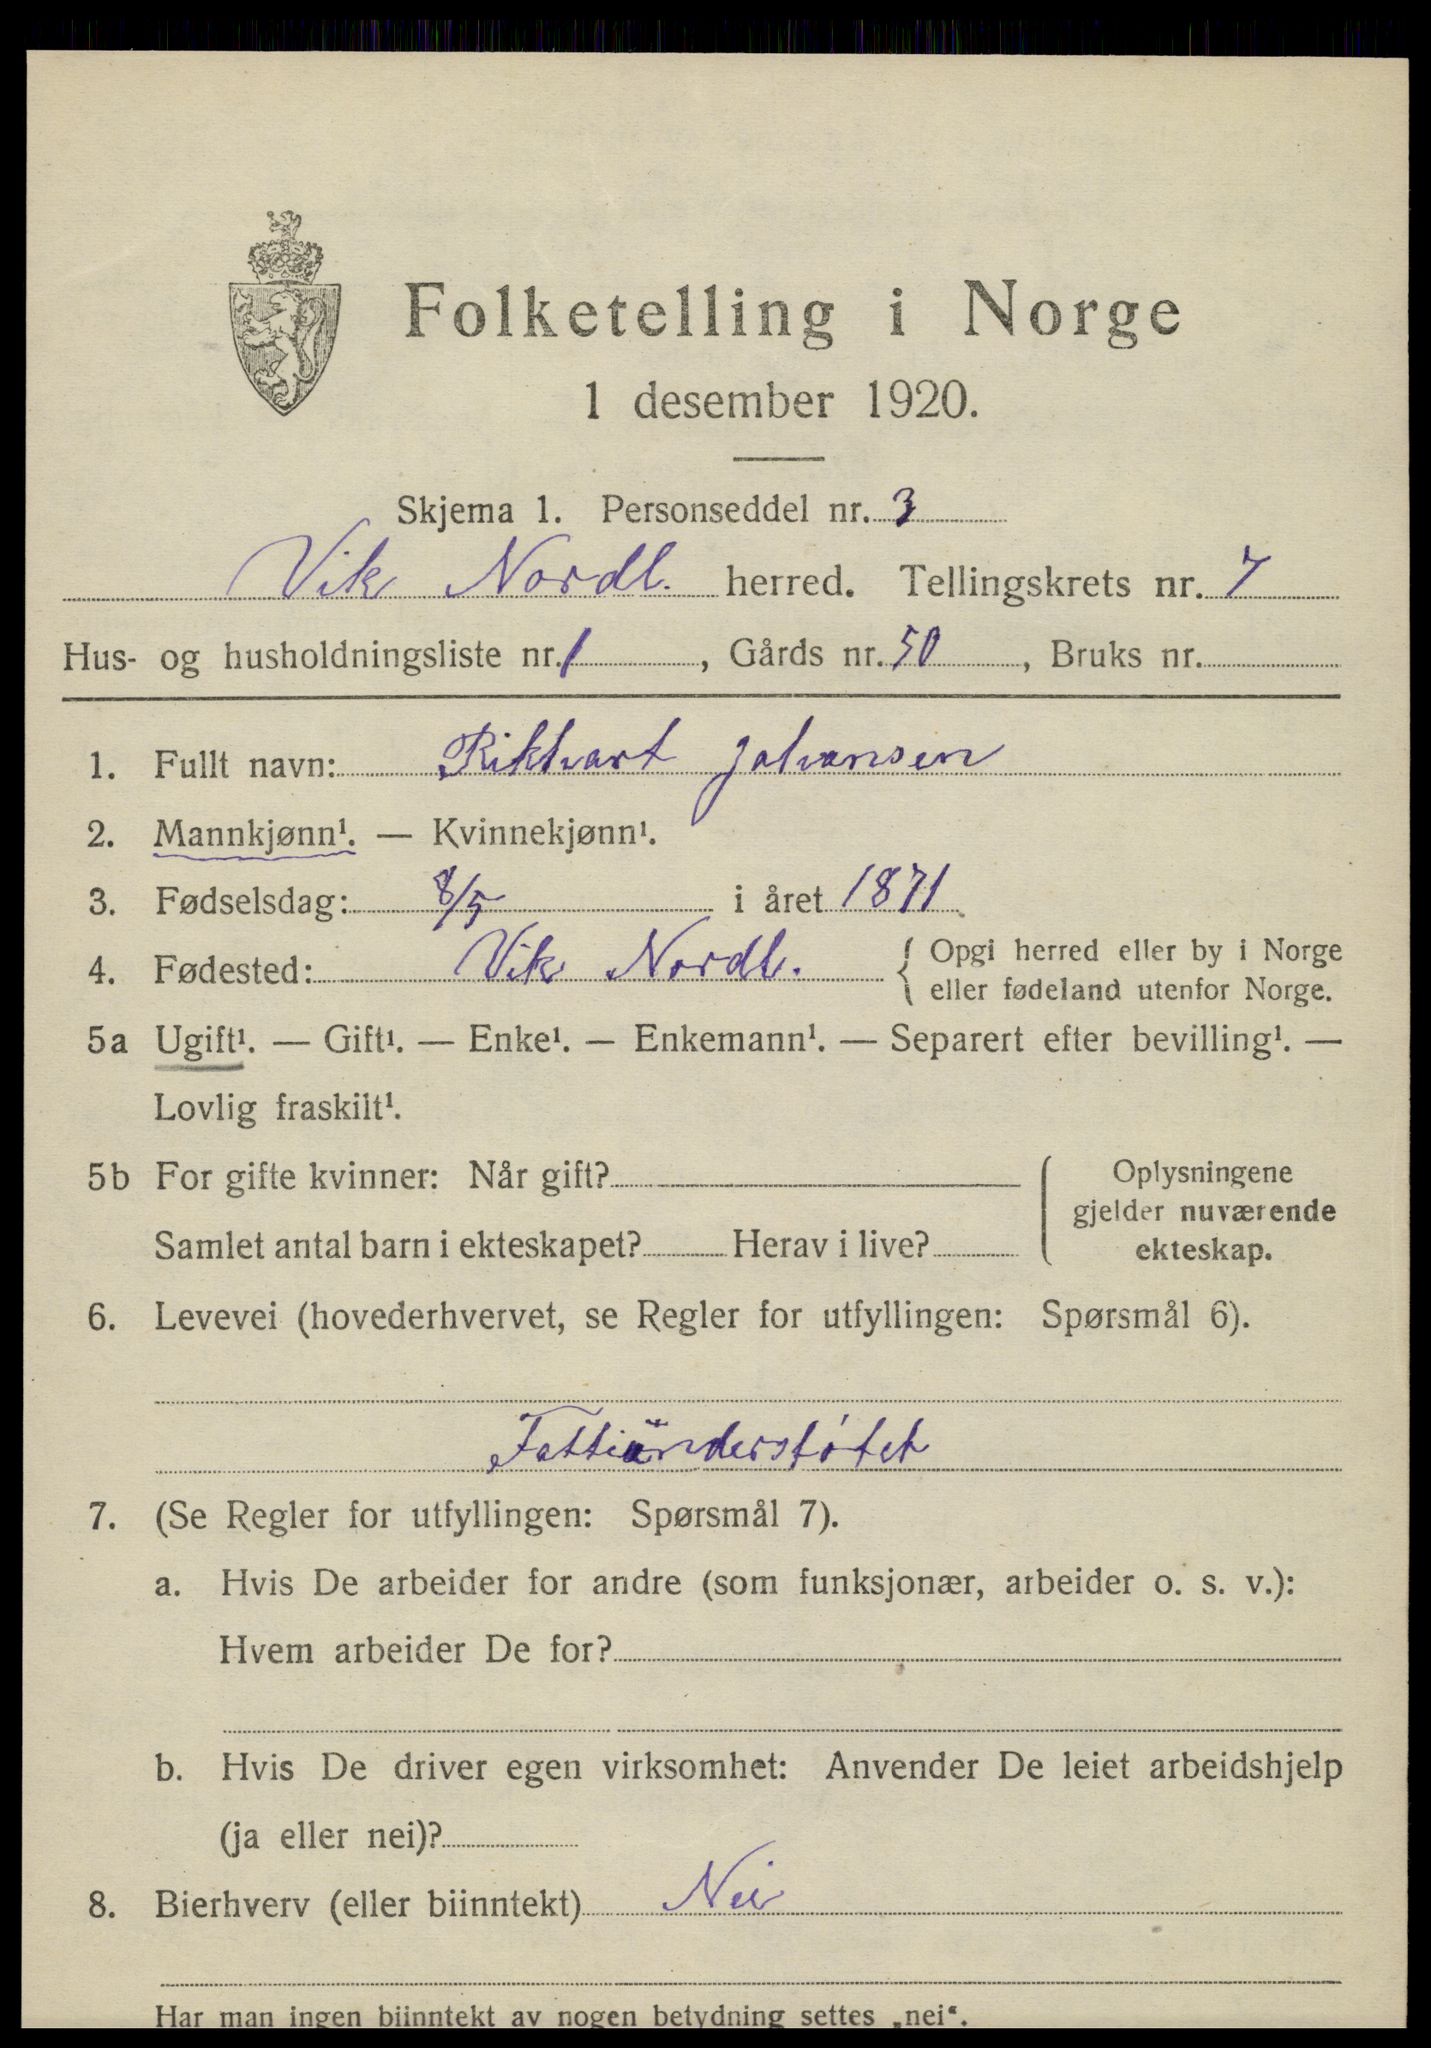 Folketelling i Norge
1 desember 1920.
Skjema 1. Personseddel nr. 3
Vik Nordl. herred. Tellingskrets nr. 7
Hus- og husholdningsliste nr. 1, Gårds nr. 50, Bruks nr.
1. Fullt navn: Rikhart Johansen
2. Mannkjønn¹. — Kvinnekjønn¹.
3. Fødselsdag: 8/5 i året 1871
4. Fødested: Vik Nordl. { Opgi herred eller by i Norge
eller fødeland utenfor Norge.
5a Ugift¹. — Gift¹. — Enke¹. — Enkemann¹. — Separert efter bevilling¹. —
Lovlig fraskilt¹.
5b For gifte kvinner: Når gift?
Samlet antal barn i ekteskapet? Herav i live?
Oplysningene
gjelder nuværende
ekteskap.
6. Levevei (hovederhvervet, se Regler for utfyllingen: Spørsmål 6).
Fattiunderstøtet
7. (Se Regler for utfyllingen: Spørsmål 7).
a. Hvis De arbeider for andre (som funksjonær, arbeider o. s. v.):
Hvem arbeider De for?
b. Hvis De driver egen virksomhet: Anvender De leiet arbeidshjelp
(ja eller nei)?
8. Bierhverv (eller biinntekt) Nei
Har man ingen biinntekt av nogen betydning settes „nei“.